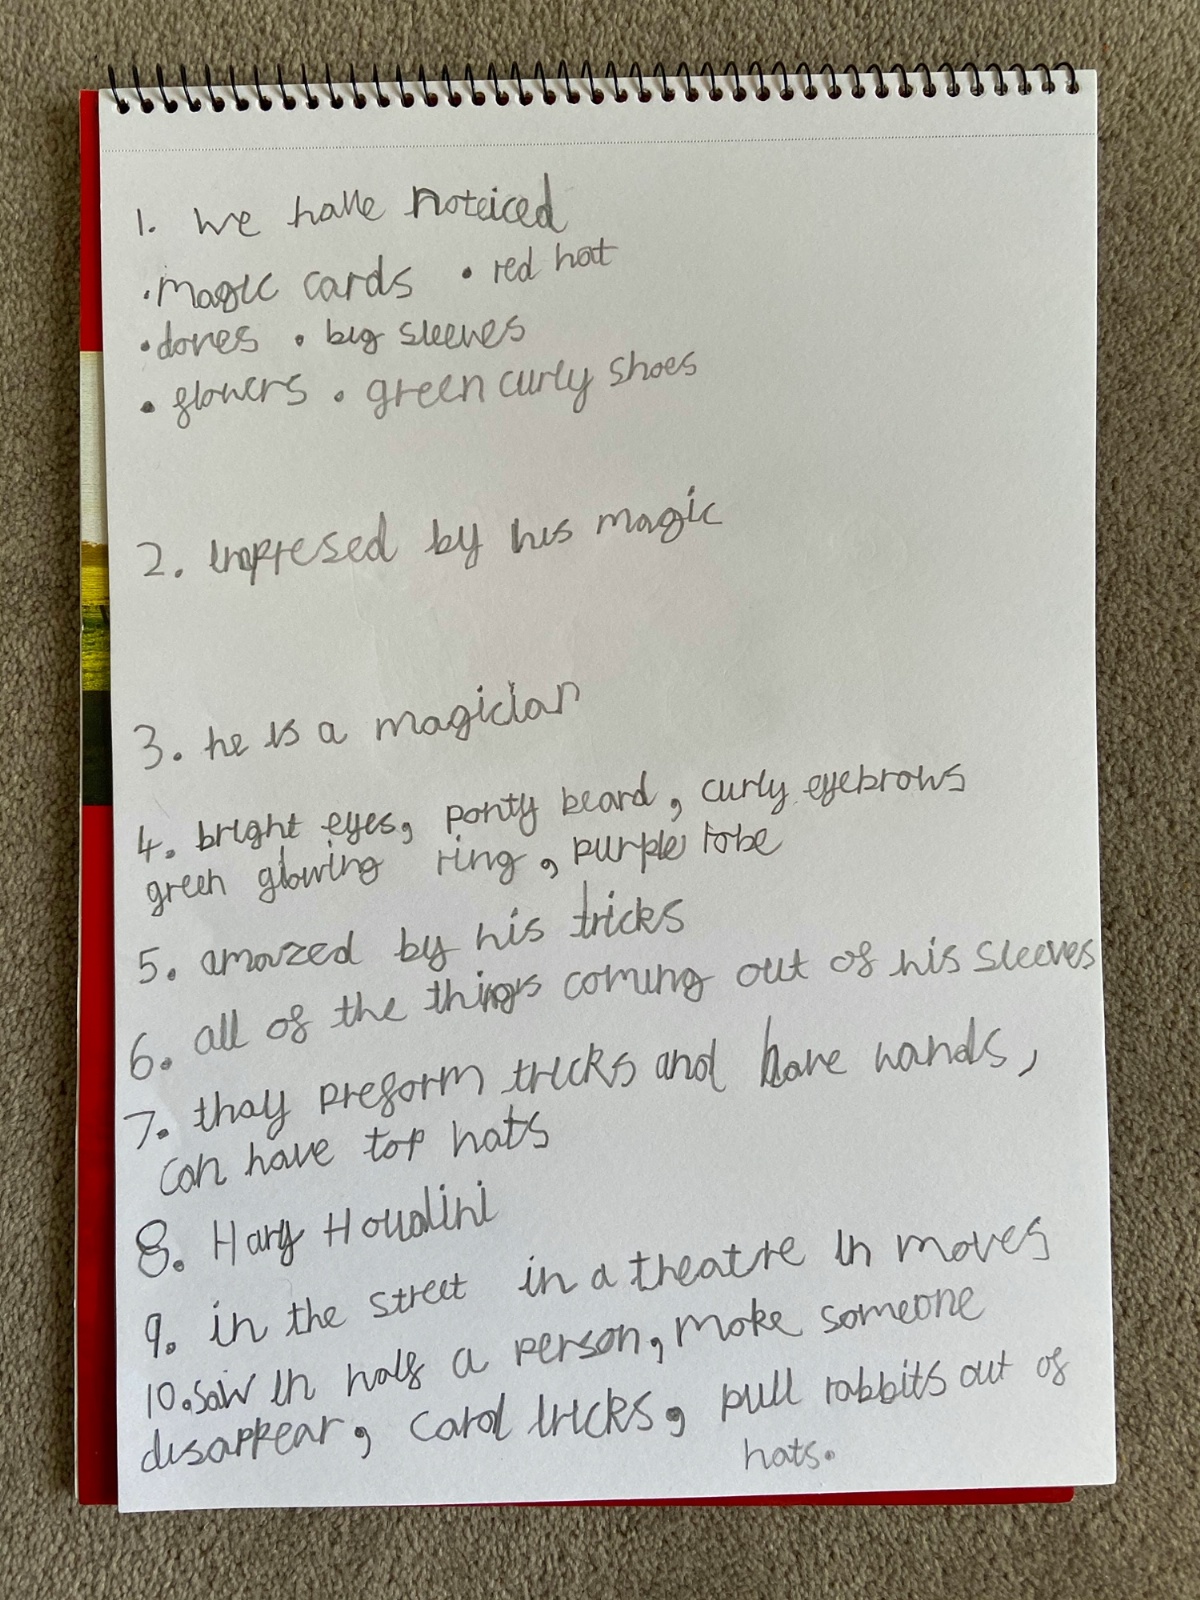 1. we have noteiced
• magic cards • red hat
• doves • big sleeves
• flowers • green curly shoes
2. impresed by his magic
3. he is a magician
4. bright eyes, ponty beard, curly eyebrows
green glowing ring, purple robe
5. amazed by his tricks
6. all of the things coming out of his sleeves
7. thay preform tricks and have wands,
can have top hats
8. Harry Houdini
9. in the street in a theatre in moves
10. saw in half a person, make someone
disappear, card tricks, pull rabbits out of
hats.